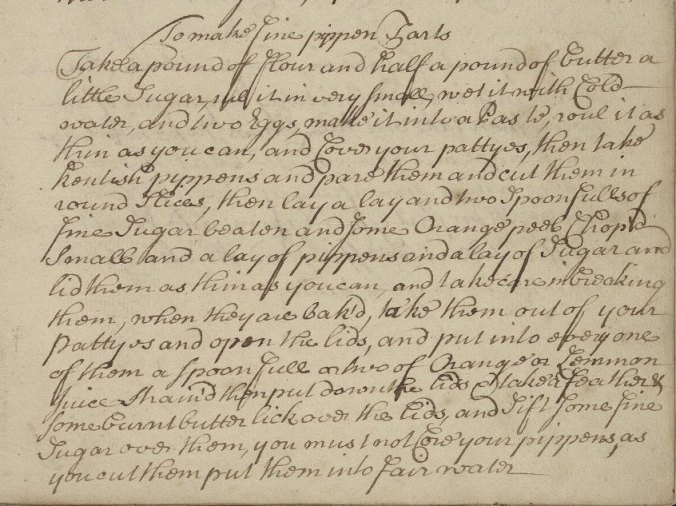 To make fine pippen Tarts
Take a pound of flour and half a pound of butter a
little Sugar, rub it in very small, wet it with Cold
water, and two Eggs, make it into a Paste, roul it as
thin as you can, and Cover your pattyes, then take
Kentish pippens and pare them and cut them in
round slices, then lay a lay and two spoonfulls of
fine Sugar beaten and some Orange peel Chop'd
small and a lay of pippens and a lay of Sugar and
lid them as thin as you can, and take care in breaking
them, when they are bak'd, take them out of your
pattyes and open the lids, and put into every one
of them a spoonfull or two of Orange or Lemmon
juice strain'd then put down the lids & take a feather &
some burnt butter lick over the lids, and sift some fine
Sugar over them, you must not Core your pippens, as
you cut them put them into fair water